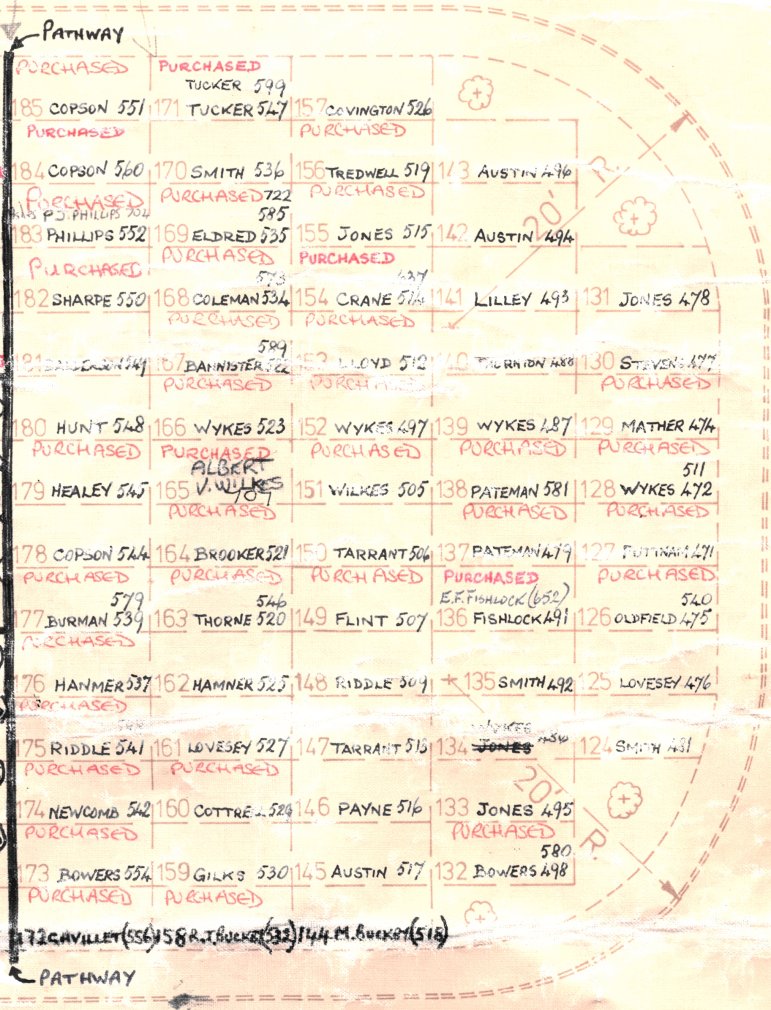 PATHWAY
PURCHASED PURCHASED
TUCKER 599
185 COPSON 551 171 TUCKER 547 157 COVINGTON 526
PURCHASED PURCHASED
184 COPSON 560 170 SMITH 536 156 TREDWELL 519 143 AUSTIN 496
PURCHASED PURCHASED 722 PURCHASED
P.J. PHILLIPS 585
183 PHILLIPS 552 169 ELDRED 535 155 JONES 515 142 AUSTIN 494
20' R.
PURCHASED PURCHASED PURCHASED
573 437
182 SHARPE 550 168 COLEMAN 534 154 CRANE 514 141 LILLEY 493 131 JONES 478
PURCHASED PURCHASED
589
181 549 167 BANNISTER 522 153 LLOYD 512 140 THORNTON 488 130 STEVENS 477
PURCHASED PURCHASED PURCHASED
180 HUNT 548 166 WYKES 523 152 WYKES 497 139 WYKES 487 129 MATHER 474
PURCHASED PURCHASED PURCHASED PURCHASED PURCHASED
ALBERT 511
V. WILKES
179 HEALEY 545 165 707 151 WILKES 505 138 PATEMAN 581 128 WYKES 472
PURCHASED PURCHASED PURCHASED
178 COPSON 544 164 BROOKER 521 150 TARRANT 506 137 PATEMAN 479 127 PUTTNAM 471
PURCHASED PURCHASED PURCHASED PURCHASED PURCHASED
579 546 E.F. FISHLOCK (652) 540
177 BURMAN 539 163 THORNE 520 149 FLINT 507 136 FISHLOCK 491 126 OLDFIELD 475
PURCHASED
176 HANMER 537 162 HAMNER 525 148 RIDDLE 509 135 SMITH 492 125 LOVESEY 476
PURCHASED
WYKES 486
175 RIDDLE 541 161 LOVESEY 527 147 TARRANT 513 134 JONES 124 SMITH 481
PURCHASED PURCHASED
20' R.
174 NEWCOMB 542 160 COTTRELL 529 146 PAYNE 516 133 JONES 495
PURCHASED PURCHASED
580
173 BOWERS 554 159 GILKS 530 145 AUSTIN 517 132 BOWERS 498
PURCHASED PURCHASED
172 GAVILLET (556) 158 R.J. BUCKBY (532) 144 M. BUCKBY (518)
PATHWAY